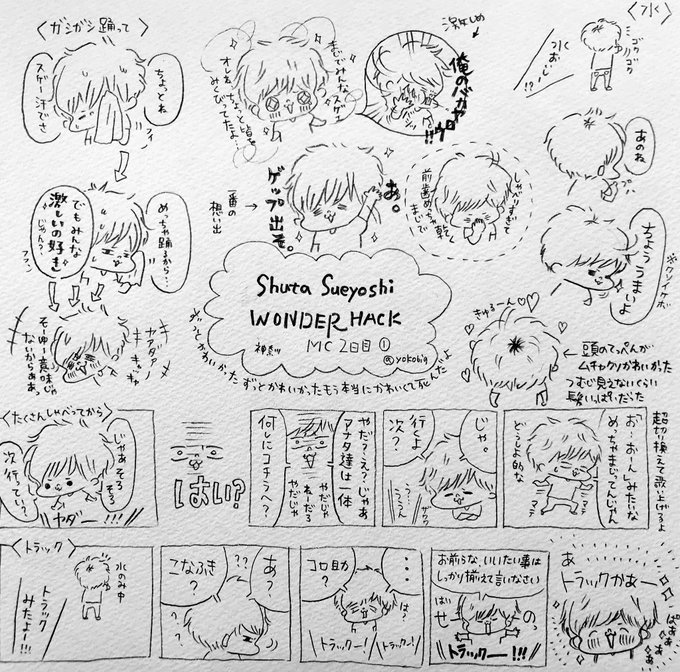 〈水〉
ゴク
ゴク
水
おいしー
!?
あのね
プハ
ちょう うまいよ
※クソイケボ
きゅるーん♡
←頭のてっぺんが
ムチャクソかわいかった
つむじ見えないくらい
涙年しめ
俺のバカヤロウ!!
まじでみんなスゲェ
オレちょっと皆を
みくびってたよ…
しゃべりすぎて
前歯めっちゃ乾く
まじで
あ。
ゲップ出そ。
一番の
想い出
→
〈ガシガシ踊って〉
ちょっとね
スゲー汗でさ
フゥ
めっちゃ踊るから…
でもみんな
激しいの好き
じゃん?
フフッ
ヤァダァ
キャッ
キャッ
そーゆー意味じゃ
ないからぁぁっ
Shuta Sueyoshi
WONDER HACK
神奈川 MC 2日目①
@yokobig
ずっとかわいかったもう本当にかわいくて死んだよ
超切り換えて盛り上げるよ
「お…おーん」みたいな
めっちゃまじてんじゃん
どうしよ的な
じゃ。
行くよ
次?
うぅーん
やだ?え?じゃあ
アナタ達は一体
何しにコチラへ?
やだじゃ
ねーだろ
やだじゃ
はい?
〈たくさんしゃべってから〉
じゃあ そろそろ
次 行っていい?
ヤダー!!!
〈トラック〉
水のみ中
トラック
みたよー!!
あ?
??
こなふき
?
・・・
コロ助
?
は?
トラックー!
トラックー!
お前らな、いいたい事は
しっかり揃えて言いなさい
はい
せーのっ
トラックー!!!
あ
トラックかあー
ぱぁぁぁ